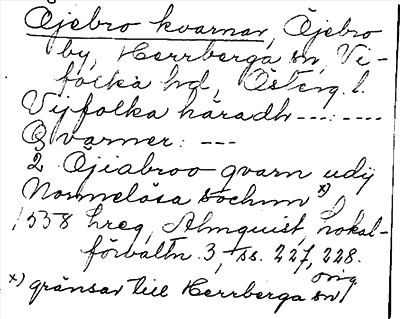 Öjebro kvarnar, Öjebro
by, Herrberga sn, Vi-
folka hd, Österg. l.
Vijfolka häradh ---: ----
Qvarner: ---
2 Öjiabroo qvarn udij
Normelösa sochnn x)
1538 hreg, Almquist, Lokal-
förvaltn. 3, ss. 227, 228.
orig.
x) gränsar till Herrberga sn